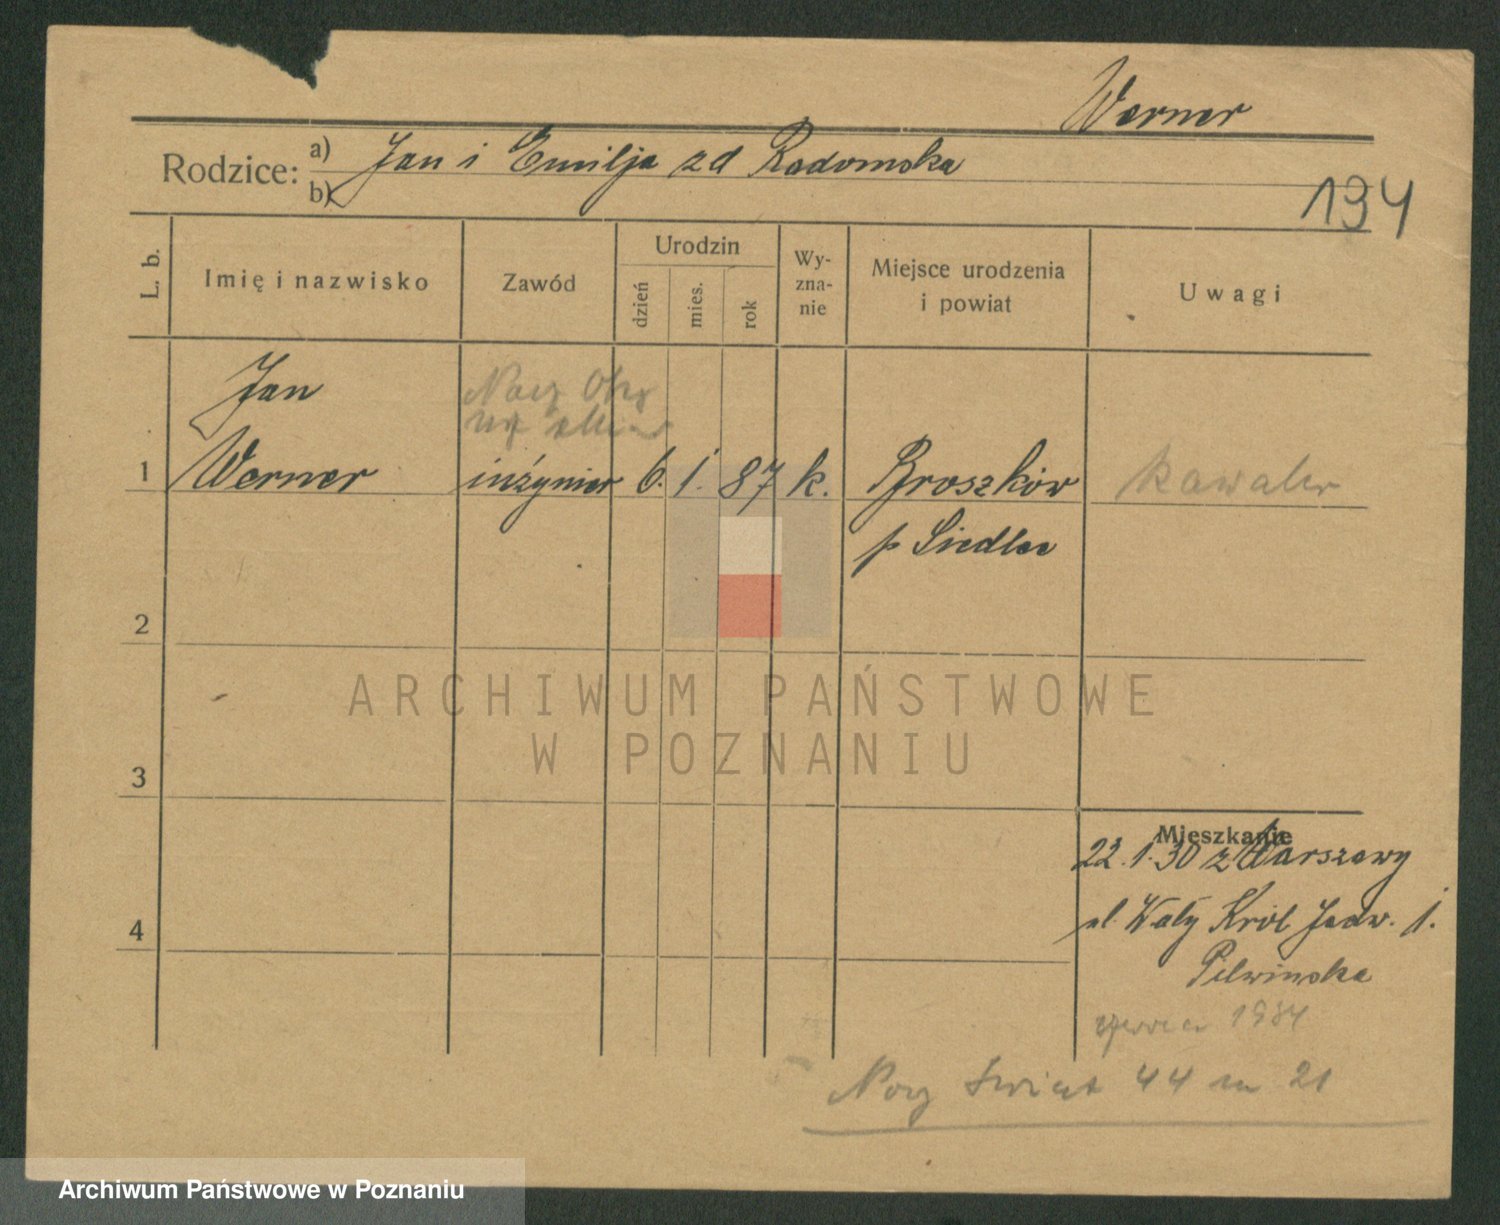 Werner
Rodzice: a) Jan i Emilja zd Radomska
b)
194
L. b.
Imię i nazwisko
Zawód
Urodzin
dzień
mies.
rok
Wy-
zna-
nie
Miejsce urodzenia
i powiat
Uwagi
Jan
1 Werner inżynier 6. 1. 87 k. Broszków kawaler
p Siedlce
2
3
4
ARCHIWUM PAŃSTWOWE
W POZNANIU
Mieszkanie
22.1.30 z Warszawy
ul. Wały Król Jadw. 1.
czerwca 1934
Nowy Świat 44 m 21
Archiwum Państwowe w Poznaniu